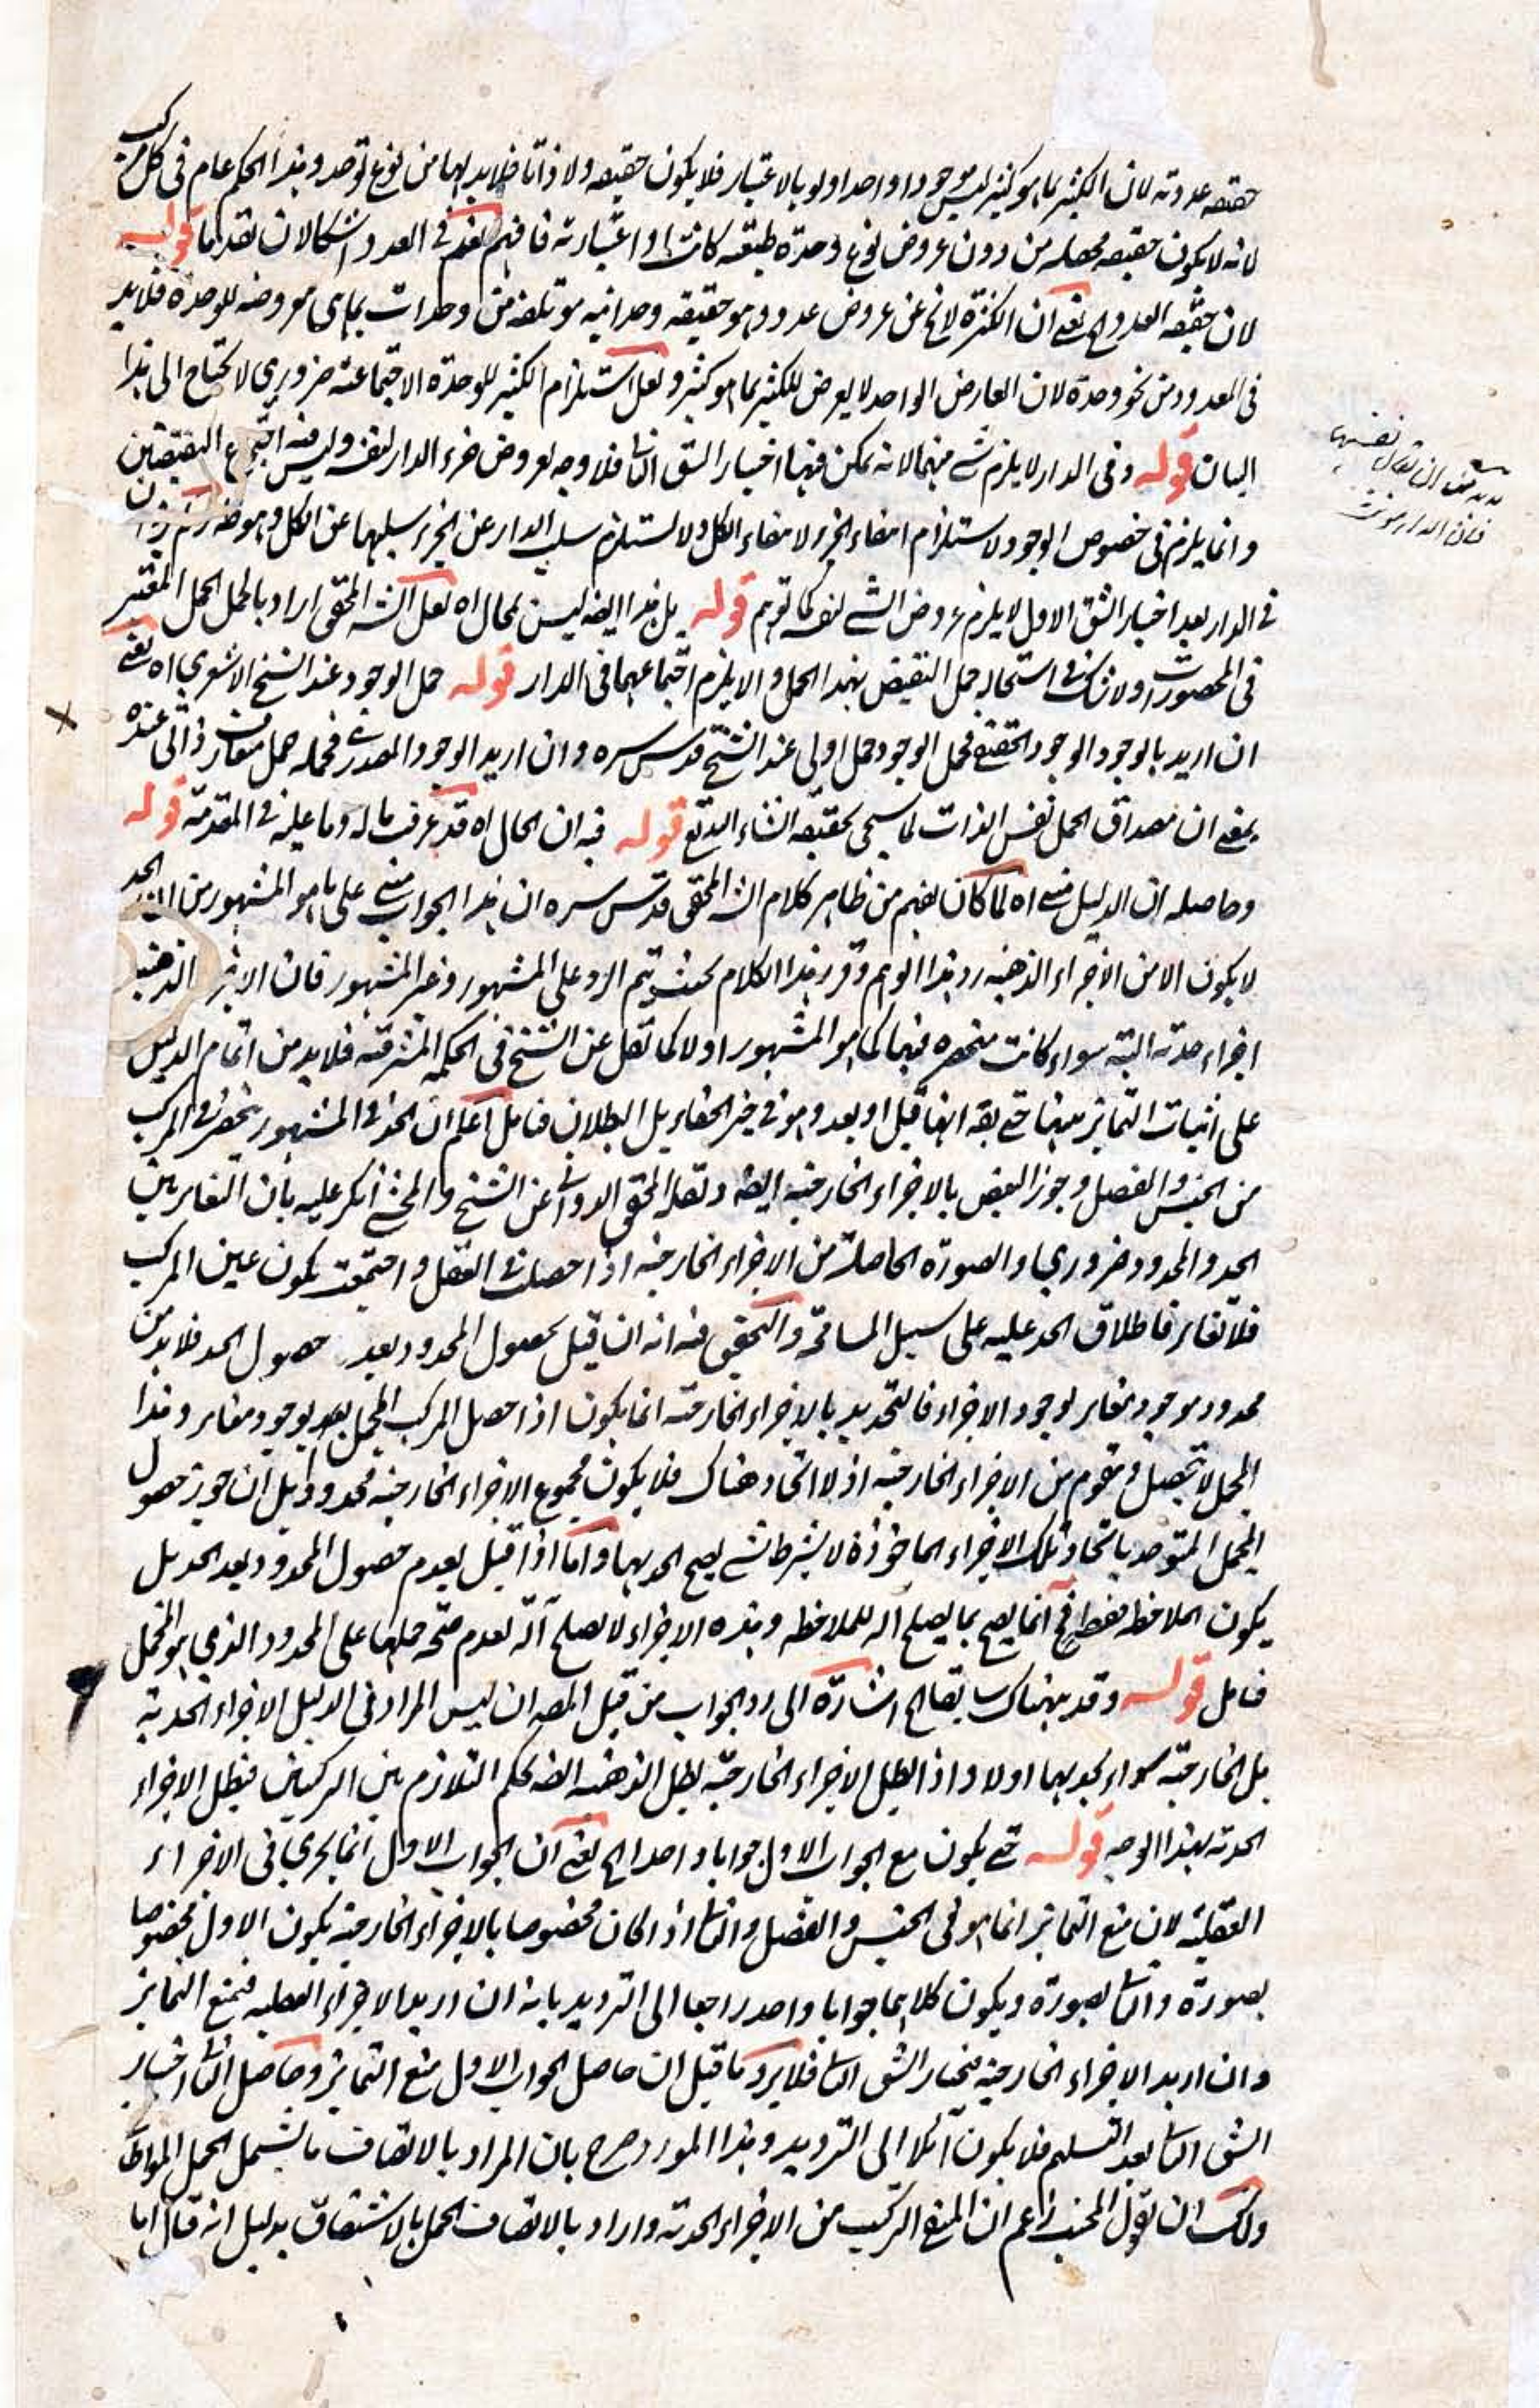 حقيقه عدديه لان الكثير بما هو كثير ليس موجودا واحدا ولو بالاعتبار فلا يكون حقيقه ولا ذاتا فلا بد لها من نوع توحد وهذا الحكم عام فى كل مركب
لانه لا يكون حقيقه محصله من دون عروض نوع وحدة حقيقه كانت او اعتباريه فافهم نعم فى العدد اشكالان تقدما قوله
لان حقيقه العدد الخ يعنى ان الكثرة لا تخ عن عروض عدد وهو حقيقه وحدانيه مؤتلفه من وحدات بما هى معروضه للوحدة فلا بد
فى المعدود من نحو وحدة لان العارض الواحد لا يعرض للكثير بما هو كثير ولعل استلزام الكثير للوحدة الاجتماعيه ضرورى لا يحتاج الى هذا
البيان قوله وفى الدار لا يلزم شئ منهما لانه يمكن فيها اختيار الشق الثانى فلا وجه لعروض جزء الدار لنفسه وليس فيه اجتماع النقيضين
وانما يلزم فى خصوص الوجود لاستلزام انتفاء الجزء لانتفاء الكل ولا يستلزم سلب الدار عن الجزء سلبها عن الكل وهو
فى الدار بعد اختيار الشق الاول لا يلزم عروض الشئ لنفسه كما توهم قوله بل هذا ايضا ليس بمحال اه لعل الش المحقق اراد بالحمل الحمل المعتبر
فى المحصورات ولا شك فى استحاله حمل النقيض بهذا الحمل والا يلزم اجتماعهما فى الدار قوله حمل الوجود عند الشيخ الاشعرى اه يعنى
ان اريد بالوجود الوجود الحقيقى فحمل الوجود حمل اولى عند الشيخ قدس سره وان اريد الوجود المصدرى فحمله حمل متعارف ذاتى عنده
بمعنى ان مصداق الحمل نفس الذات كما سيجئ تحقيقه انشاء الله تع قوله فيه ان الحال اه قد عرفت ما له وما عليه فى المقدمة قوله
وحاصله ان الدليل مبنى اه لما كان يفهم من ظاهر كلام الش المحقق قدس سره ان هذا الجواب مبنى على ما هو المشهور من ان الحد
لا يكون الا من الاجزاء الذهنيه رد هذا الوهم وقرر هذا الكلام بحيث يتم الرد على المشهور وغير المشهور فان الاجزاء الذهنيه
اجزاء حديه البته سواء كانت منحصره فيها كما هو المشهور او لا كما نقل عن الشيخ فى الحكمه المشرقيه فلا بد من اتمام الدليل
على اثبات التمايز بينها حتى يقه انها قبل او بعد وهو فى حيز الخفاء بل البطلان فتامل اعلم ان الحد فى المشهور ينحصر فى المركب
من الجنس والفصل وجوز البعض بالاجزاء الخارجيه ايضه ونقله المحقق الدوانى عن الشيخ والمحشى انكر عليه بان التغاير بين
الحد والمحدود ضرورى والصورة الحاصلة من الاجزاء الخارجيه اذا حصلت فى العقل واجتمعت يكون عين المركب
فلا تغاير فاطلاق الحد عليه على سبيل المسامحة والتحقيق فيه انه ان قيل بحصول المحدود بعد حصول الحد فلا بد من
محدود موجود بمغاير لوجود الاجزاء فالتحديد بالاجزاء الخارجيه انما يكون اذا حصل المركب المجمل بعد بوجود مغاير وهذا
المجمل لا يحصل ويتقوم من الاجزاء الخارجيه اذ لا اتحاد هناك فلا يكون مجموع الاجزاء الخارجيه محدودا بل ان جوز حصول
المجمل المتوحد باتحاد تلك الاجزاء الماخوذة لا بشرط شئ يصح الحد بها واما اذا قيل بعدم حصول المحدود بعد الحد بل
يكون الملاحظه فقط فح انما يصح بما يصلح آله للملاحظه وهذه الاجزاء لا يصلح آلة لعدم صحة حملها على المحدود الذى هو المجمل
فتامل قوله وقد نبهناك سابقا الخ اشارة الى رد الجواب من قبل المصه ان ليس المراد فى الدليل الاجزاء الحديه
بل الخارجيه سواء يحد بها او لا واذا بطل الاجزاء الخارجيه بطل الذهنيه ايضه لحكم التلازم بين التركيبين فيبطل الاجزاء
الحديه بهذا الوجه قوله حتى يكون مع الجواب الاول جوابا واحدا الخ يعنى ان الجواب الاول انما يجرى فى الاجزاء
العقليه لان منع التمايز انما هو فى الجنس والفصل والثانى اذا كان مخصوصا بالاجزاء الخارجيه يكون الاول مخصوصا
بصورة والثانى بصورة ويكون كلاهما جوابا واحدا راجعا الى الترديد بانه ان اريد الاجزاء العقليه فنمنع التمايز
وان اريد الاجزاء الخارجيه فنختار الشق الثانى فلا يرد ما قيل ان حاصل الجواب الاول منع التمايز وحاصل الثانى اختيار
الشق الثانى بعد التسليم فلا يكون آئلا الى الترديد وهذا المورد صرح بان المراد بالاتصاف ما يشمل الحمل المواطاة
ولك ان تقول المجيب زعم ان المنفى التركيب من الاجزاء الحديه واراد بالاتصاف الحمل بالاشتقاق بدليل انه قال اما